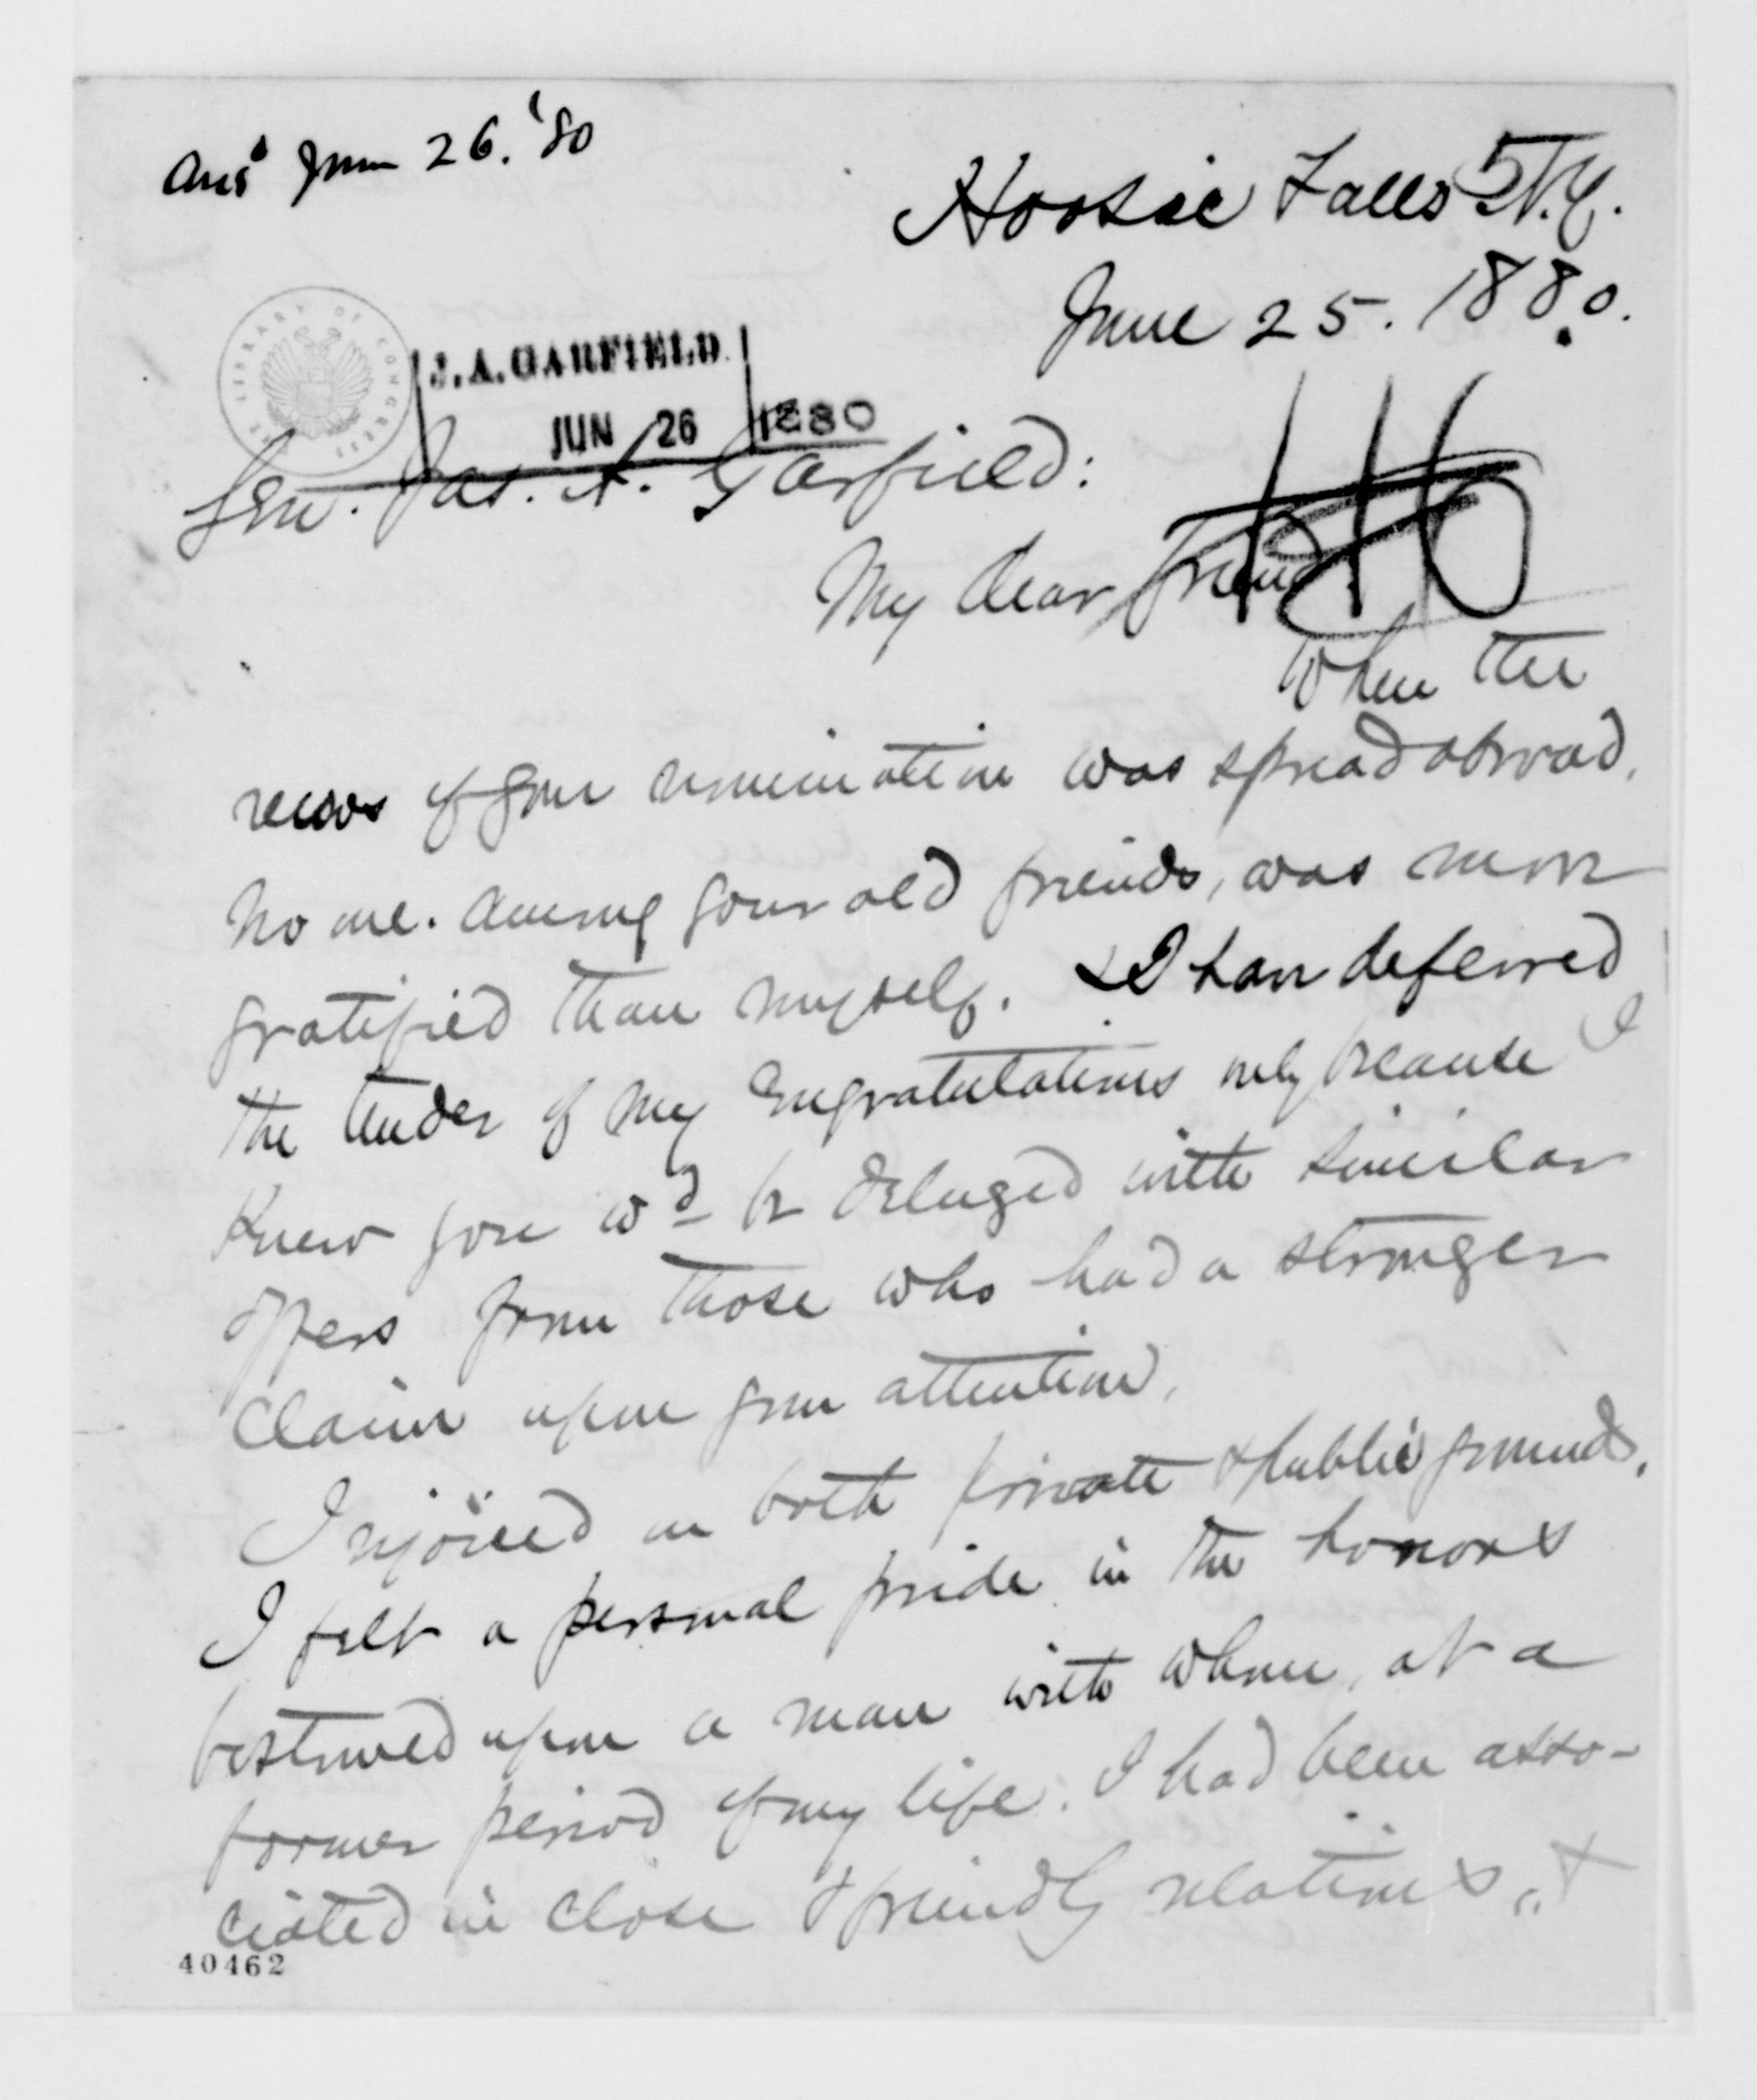 Ansd June 26. '80
Hoosic Falls N.Y.
June 25. 1880.
THE LIBRARY OF CONGRESS
J. A. GARFIELD.
JUN 26 1880
Gen. Jas. A. Garfield:
My dear friend
When the
news of your nomination was spread abroad,
no one. among your old friends, was more
gratified than myself. & I have deferred
the tender of my congratulations only because I
knew you wd be deluged with similar
offers from those who had a stronger
claim upon your attention.
I rejoiced on both private & public grounds.
I felt a personal pride in the honors
bestowed upon a man with whom, at a
former period of my life, I had been asso-
ciated in close & friendly relations, &
40462